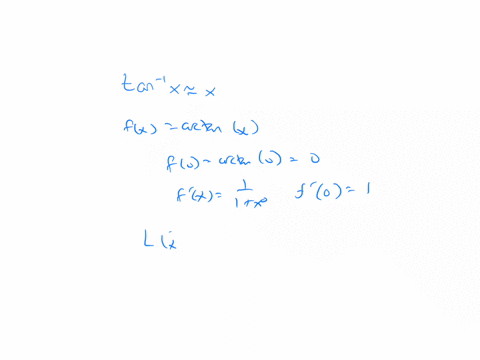 tan⁻¹ x ≈ x
f(x) = arctan (x)
f(0) = arctan (0) = 0
f'(x) = 1/(1+x²) f'(0) = 1
L(x